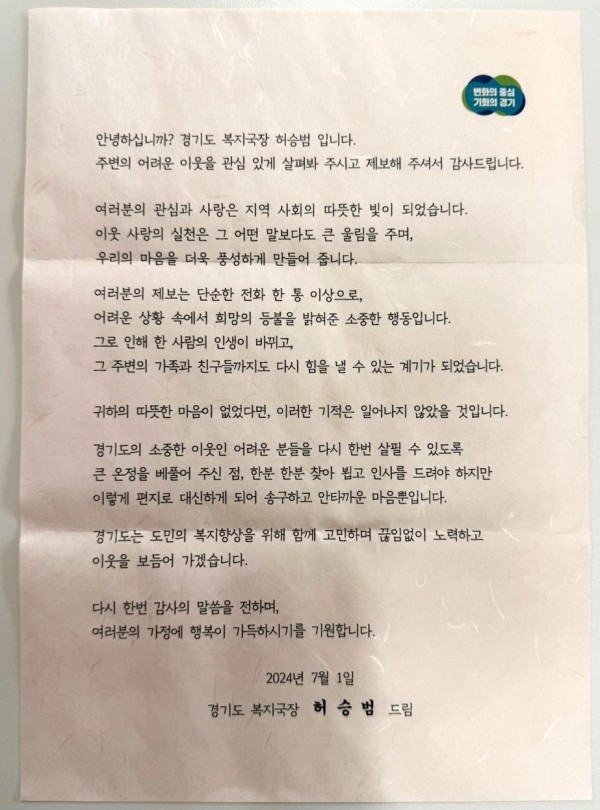 변화의 중심
기회의 경기
안녕하십니까? 경기도 복지국장 허승범 입니다.
주변의 어려운 이웃을 관심 있게 살펴봐 주시고 제보해 주셔서 감사드립니다.
여러분의 관심과 사랑은 지역 사회의 따뜻한 빛이 되었습니다.
이웃 사랑의 실천은 그 어떤 말보다도 큰 울림을 주며,
우리의 마음을 더욱 풍성하게 만들어 줍니다.
여러분의 제보는 단순한 전화 한 통 이상으로,
어려운 상황 속에서 희망의 등불을 밝혀준 소중한 행동입니다.
그로 인해 한 사람의 인생이 바뀌고,
그 주변의 가족과 친구들까지도 다시 힘을 낼 수 있는 계기가 되었습니다.
귀하의 따뜻한 마음이 없었다면, 이러한 기적은 일어나지 않았을 것입니다.
경기도의 소중한 이웃인 어려운 분들을 다시 한번 살필 수 있도록
큰 온정을 베풀어 주신 점, 한분 한분 찾아 뵙고 인사를 드려야 하지만
이렇게 편지로 대신하게 되어 송구하고 안타까운 마음뿐입니다.
경기도는 도민의 복지향상을 위해 함께 고민하며 끊임없이 노력하고
이웃을 보듬어 가겠습니다.
다시 한번 감사의 말씀을 전하며,
여러분의 가정에 행복이 가득하시기를 기원합니다.
2024년 7월 1일
경기도 복지국장 허승범 드림